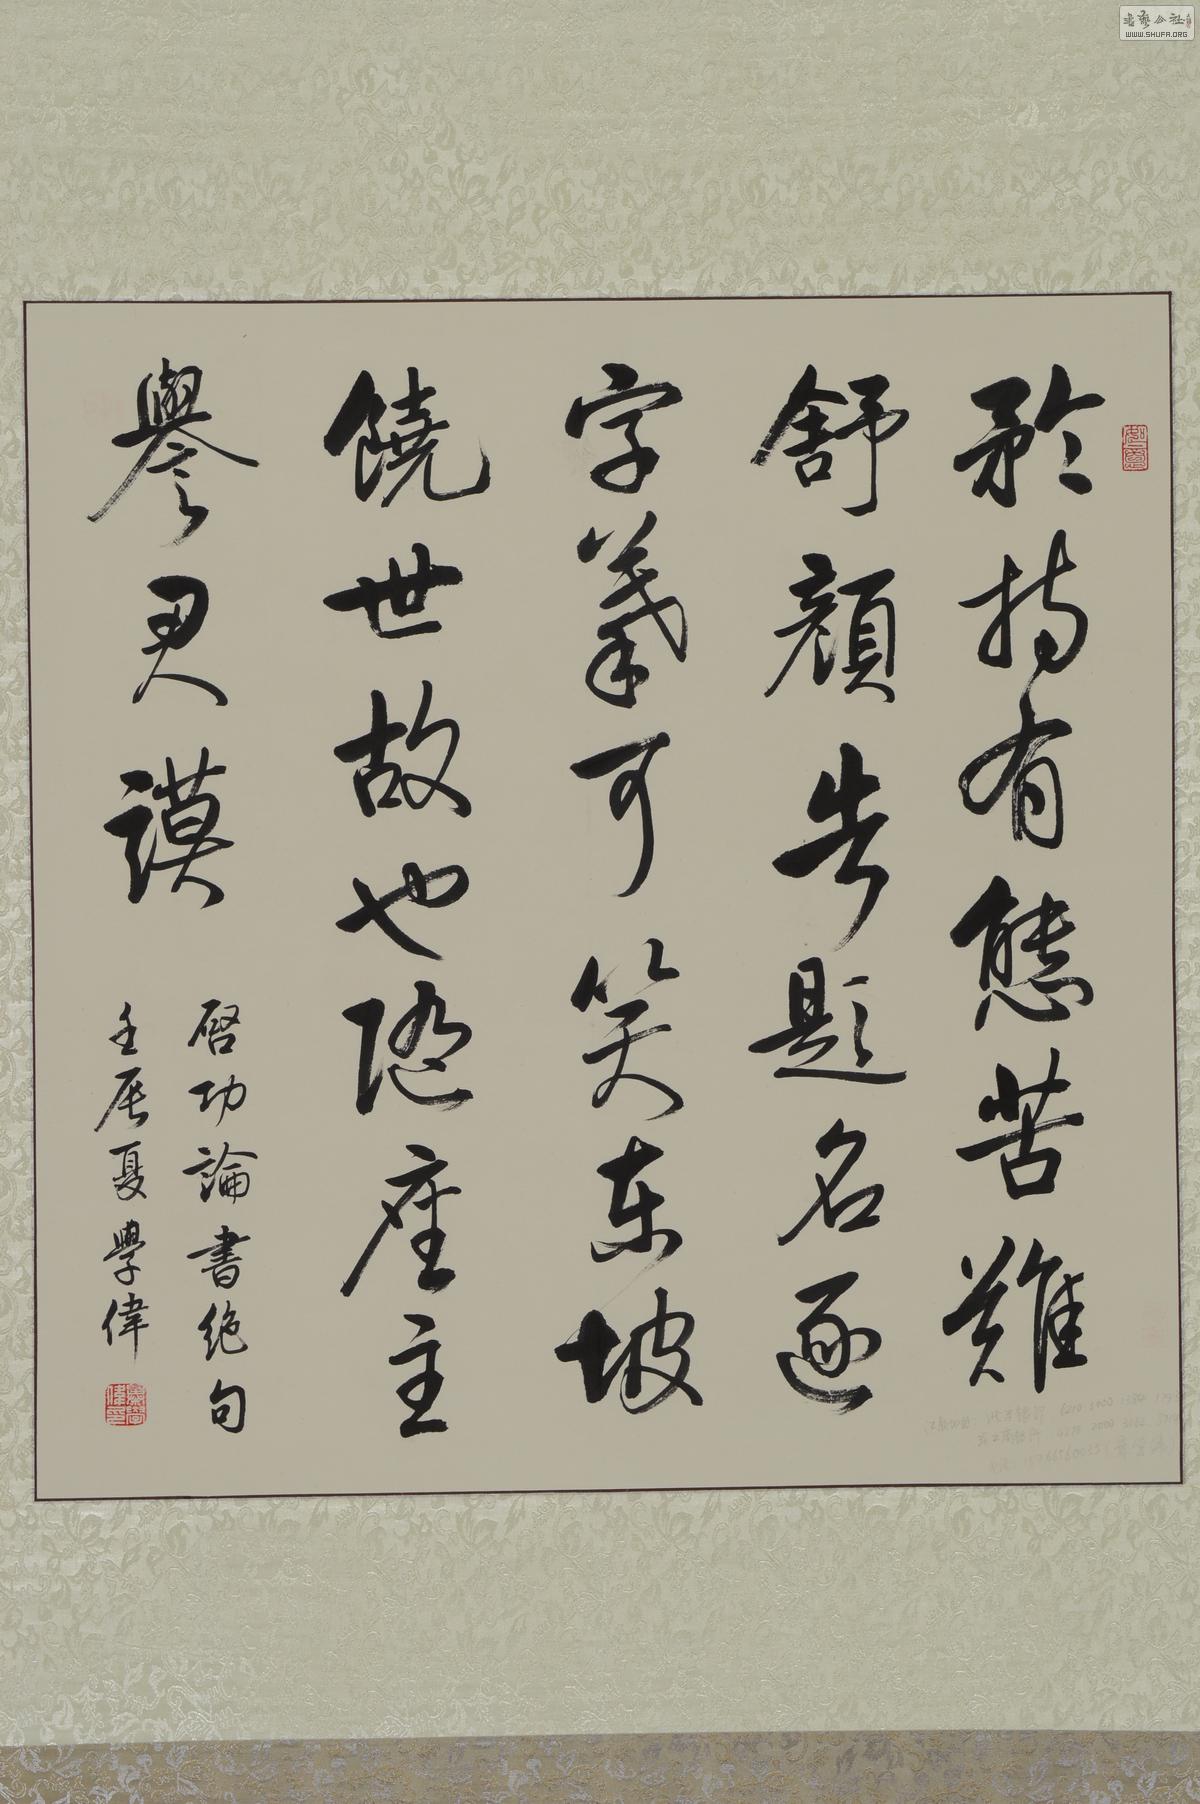 矜持有態苦難
舒顏告題名逐
字摹可笑東坡
饒世故也随座主
譽君謨
啓功論書絶句
壬辰夏學偉
書藝公社
WWW.SHUFA.ORG